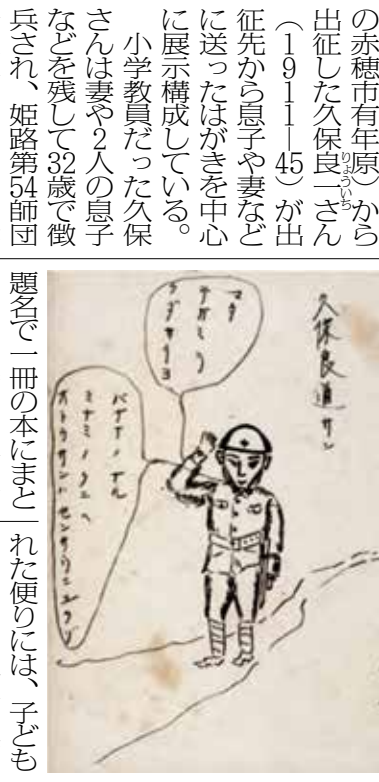 の赤穂市有年原）から
出征した久保良一さん
りょういち
（1911―45）が出
征先から息子や妻など
に送ったはがきを中心
に展示構成している。
　小学教員だった久保
さんは妻や2人の息子
などを残して32歳で徴
兵され、姫路第54師団
久保良道サン
マタ
テガミヲ
バナナノナル
ミナミノクニヘ
オトウサンハセンサウニユクゾ
題名で一冊の本にまと
れた便りには、子ども